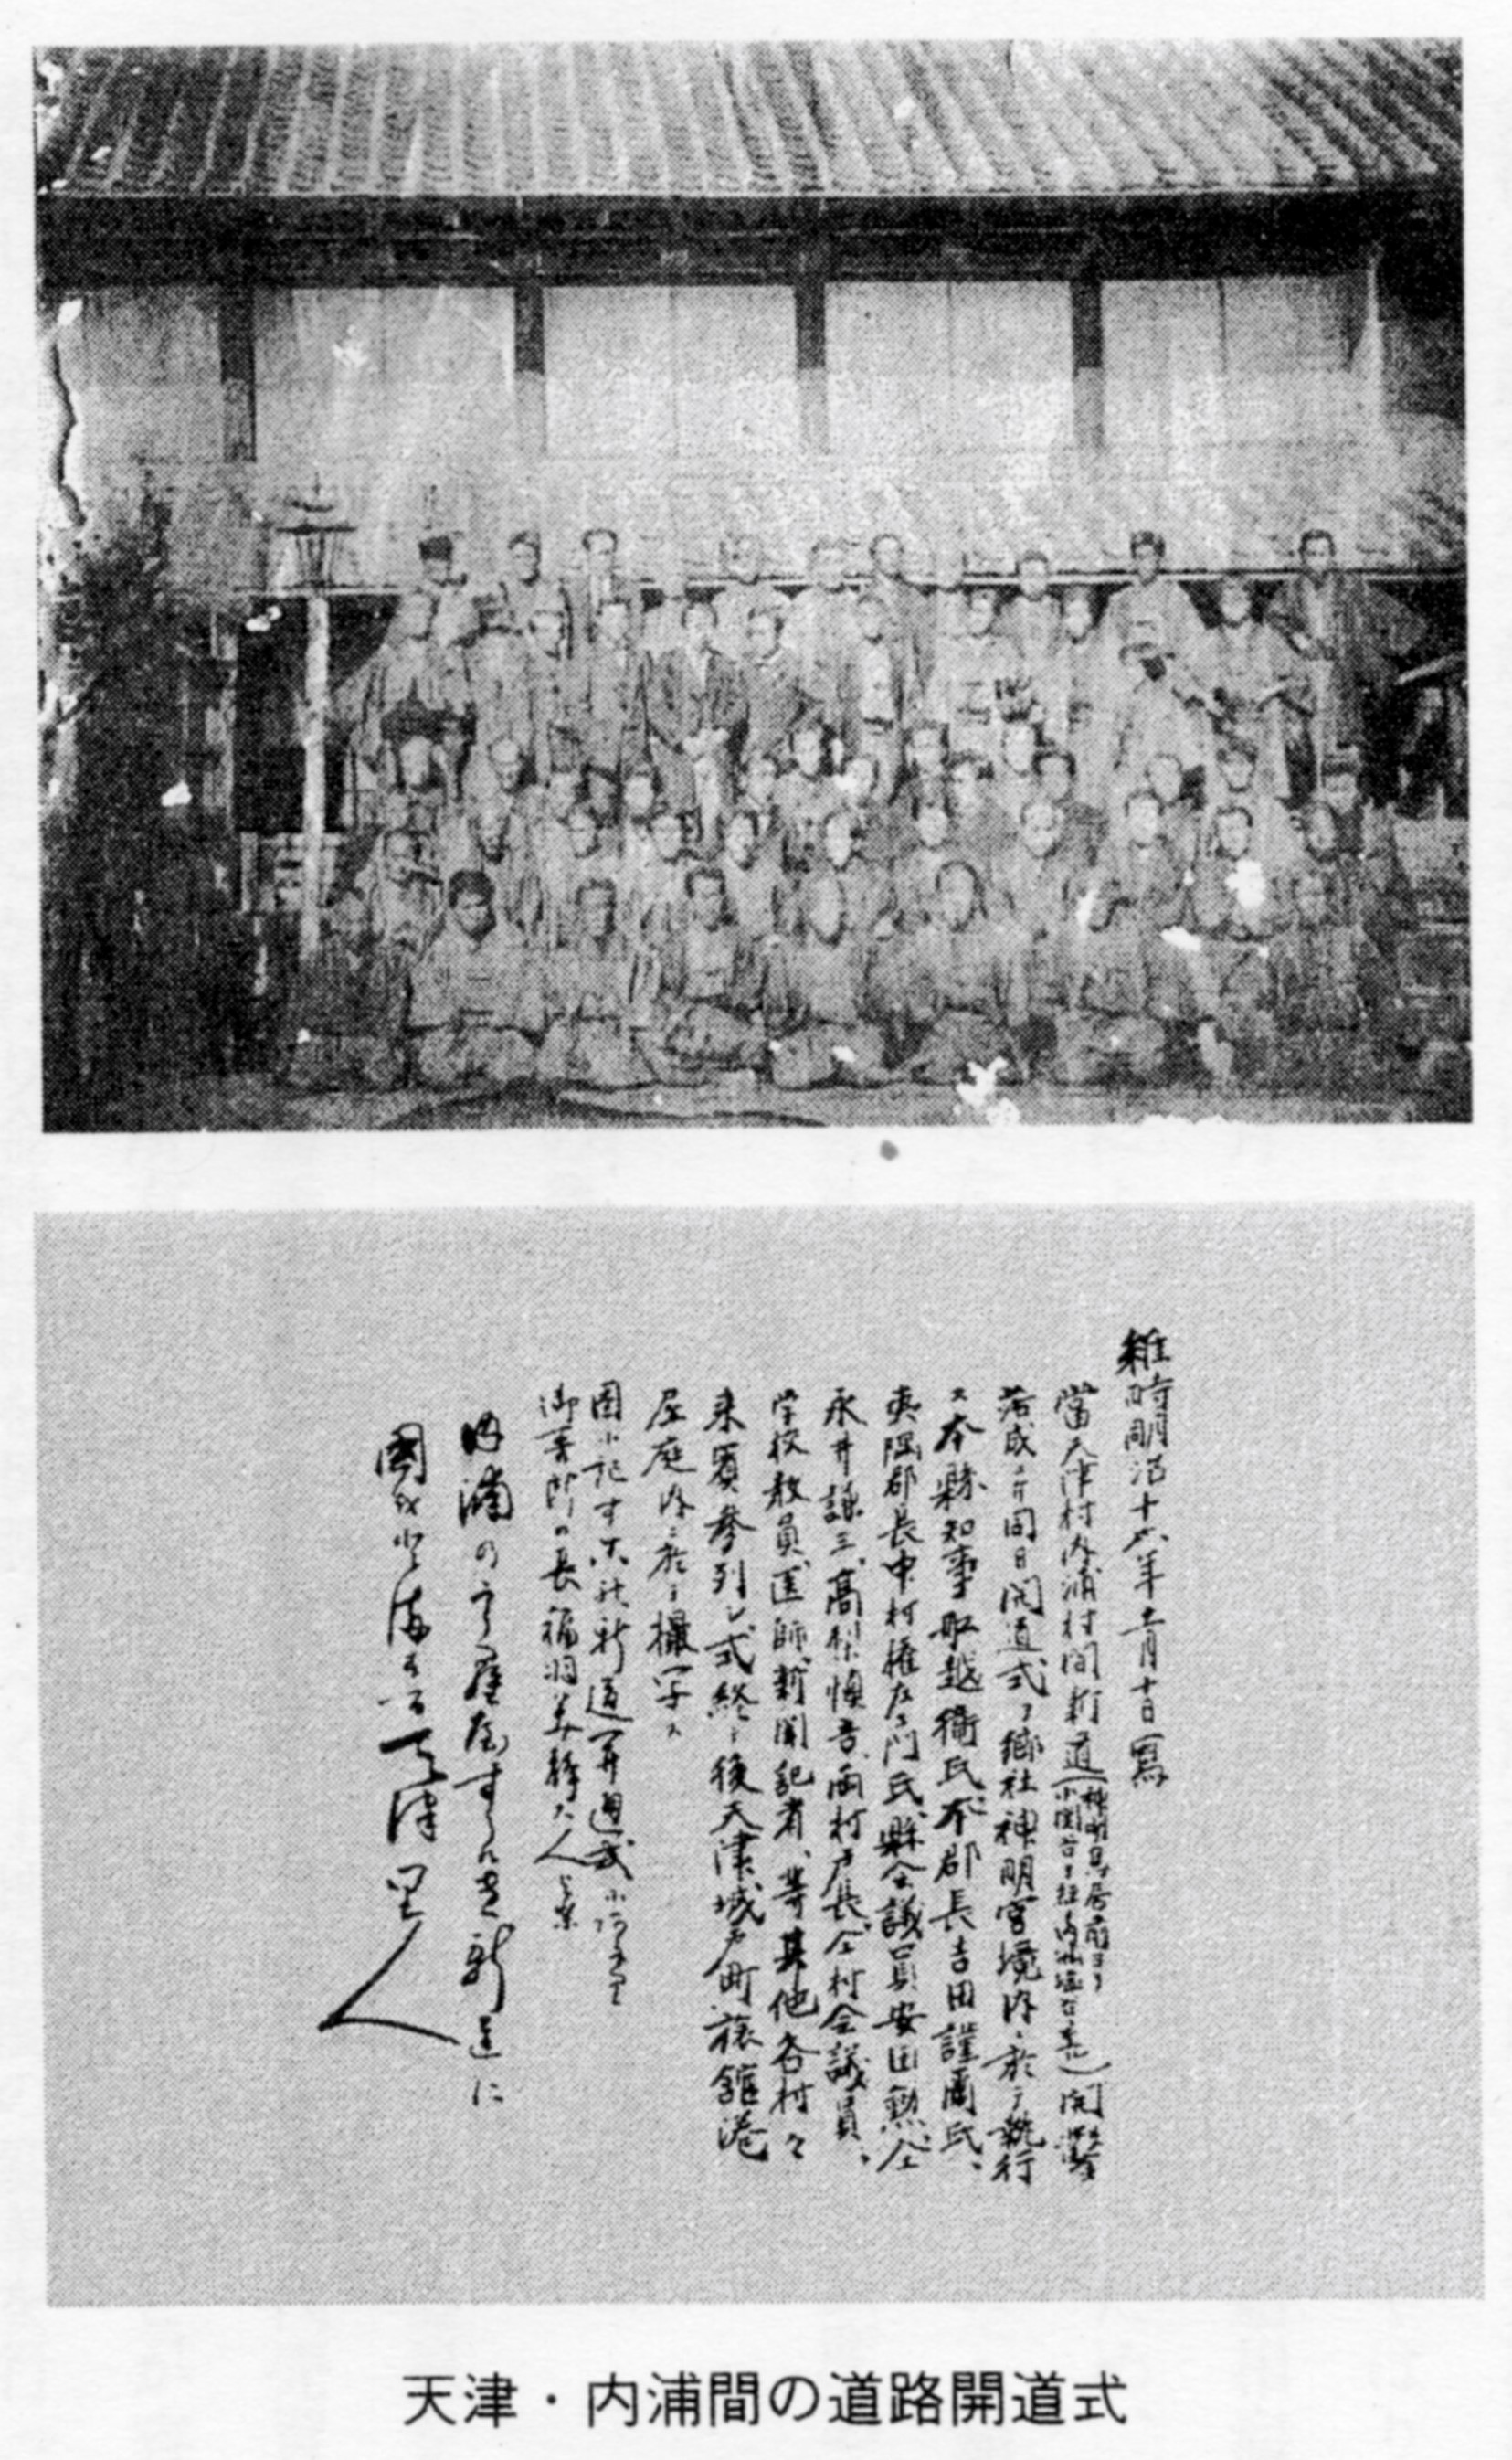 維時明治十六年十一月十日寫
當天津村内浦村間新道(神明鳥居前ヨリ
小湊 内浦 )開鑿
落成ニ付同日開道式ヲ郷社神明宮境内ニ於テ執行
ス本縣知事船越衛氏、本郡長吉田謹爾氏、
夷隅郡長中村権左エ門氏、縣会議員安田勲、仝
永井謙三、高梨慎吾、両村戸長、仝村会議員、
学校教員、医師、新聞記者、等其他各村々
来賓参列し式終ル後天津城戸町旅舘港
屋庭内ニ於テ撮写ス
図に記す 新道開通式に
御 の長福羽美静大人
内浦の すられき新道に
國 天津里人
天津・内浦間の道路開道式